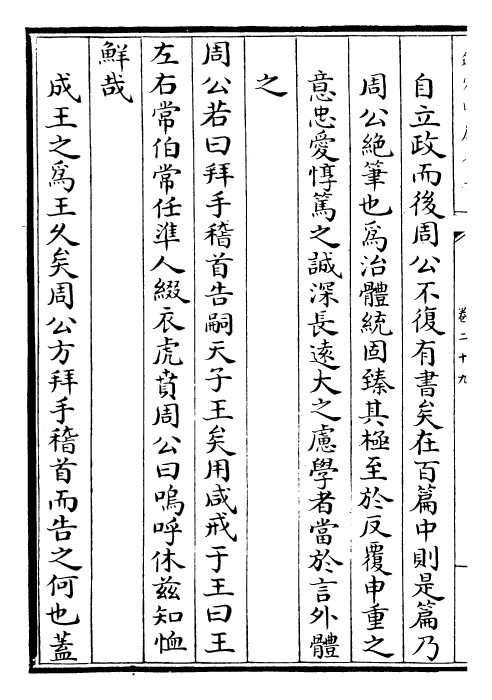 卷二十九
自立政而後周公不復有書矣在百篇中則是篇乃
周公絶筆也爲治體統固臻其極至於反覆申重之
意忠愛惇篤之誠深長遠大之慮學者當於言外體
之
周公若曰拜手稽首告嗣天子王矣用咸戒于王曰王
左右常伯常任準人綴衣虎賁周公曰嗚呼休茲知恤
鮮哉
成王之爲王久矣周公方拜手稽首而告之何也蓋